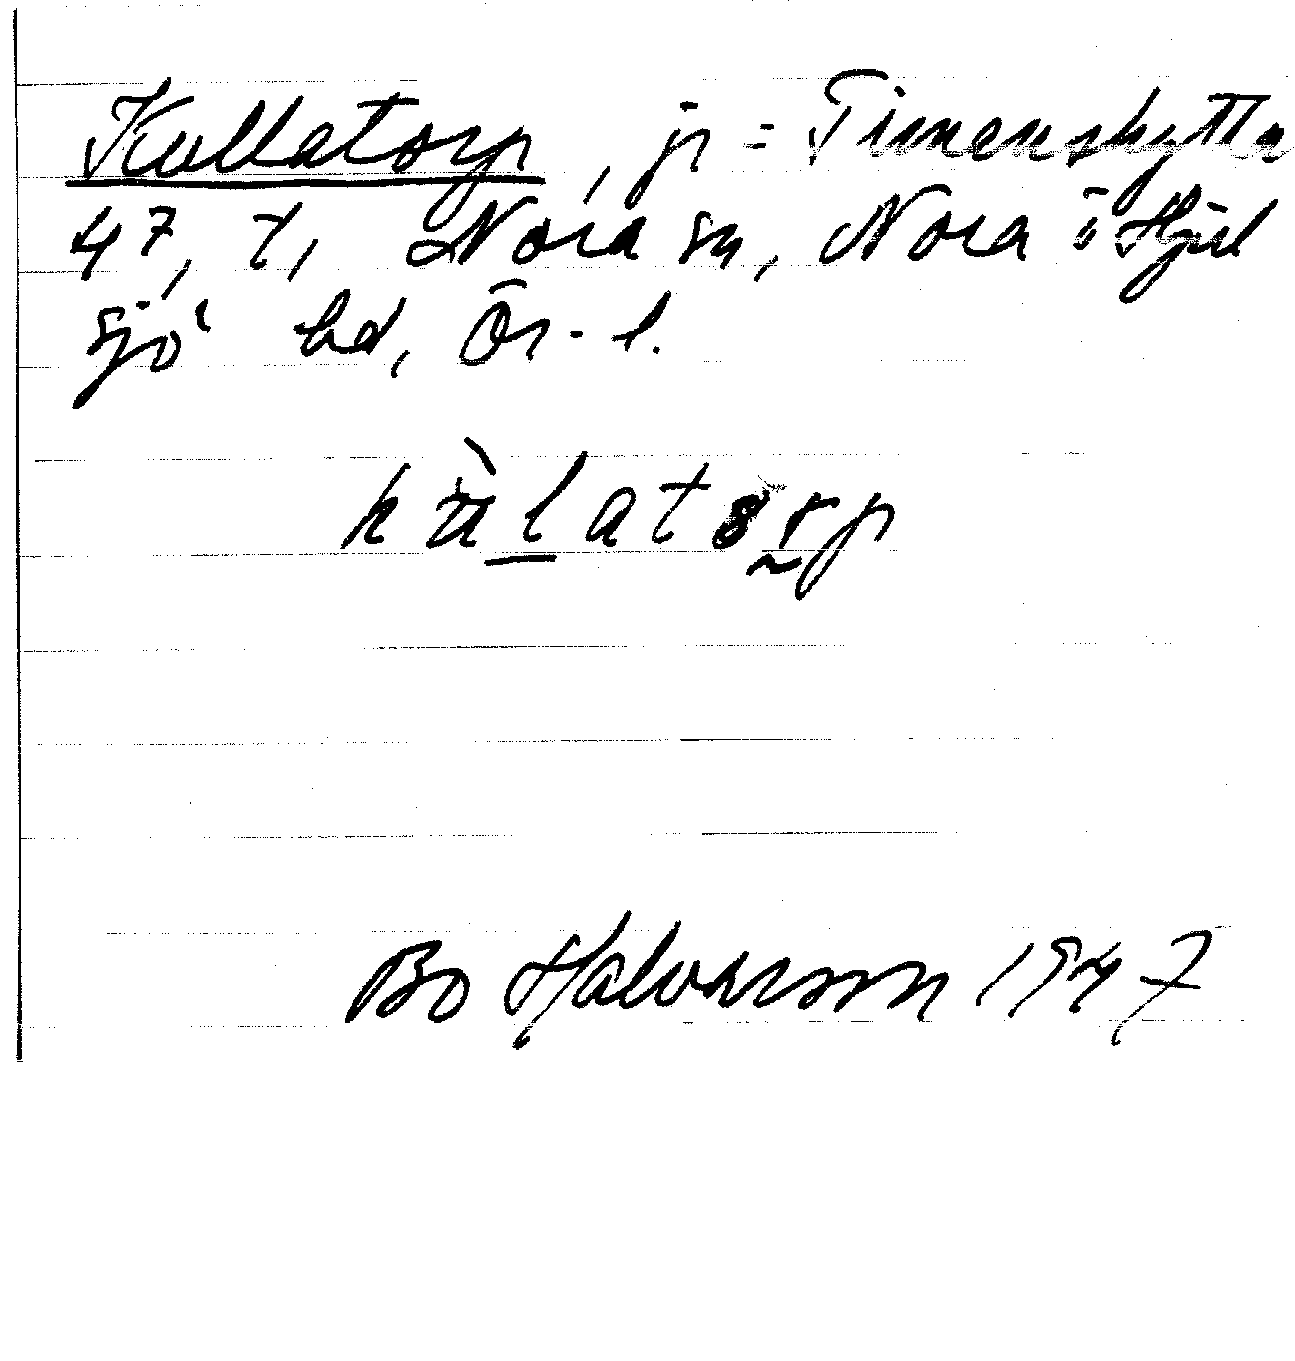 Kullatorp, jr = Timanshytta
47, t, Nora sn, Nora o Hjul
sjö bd, Ör. l.
kùlatorp
Bo Halvarsson 1947